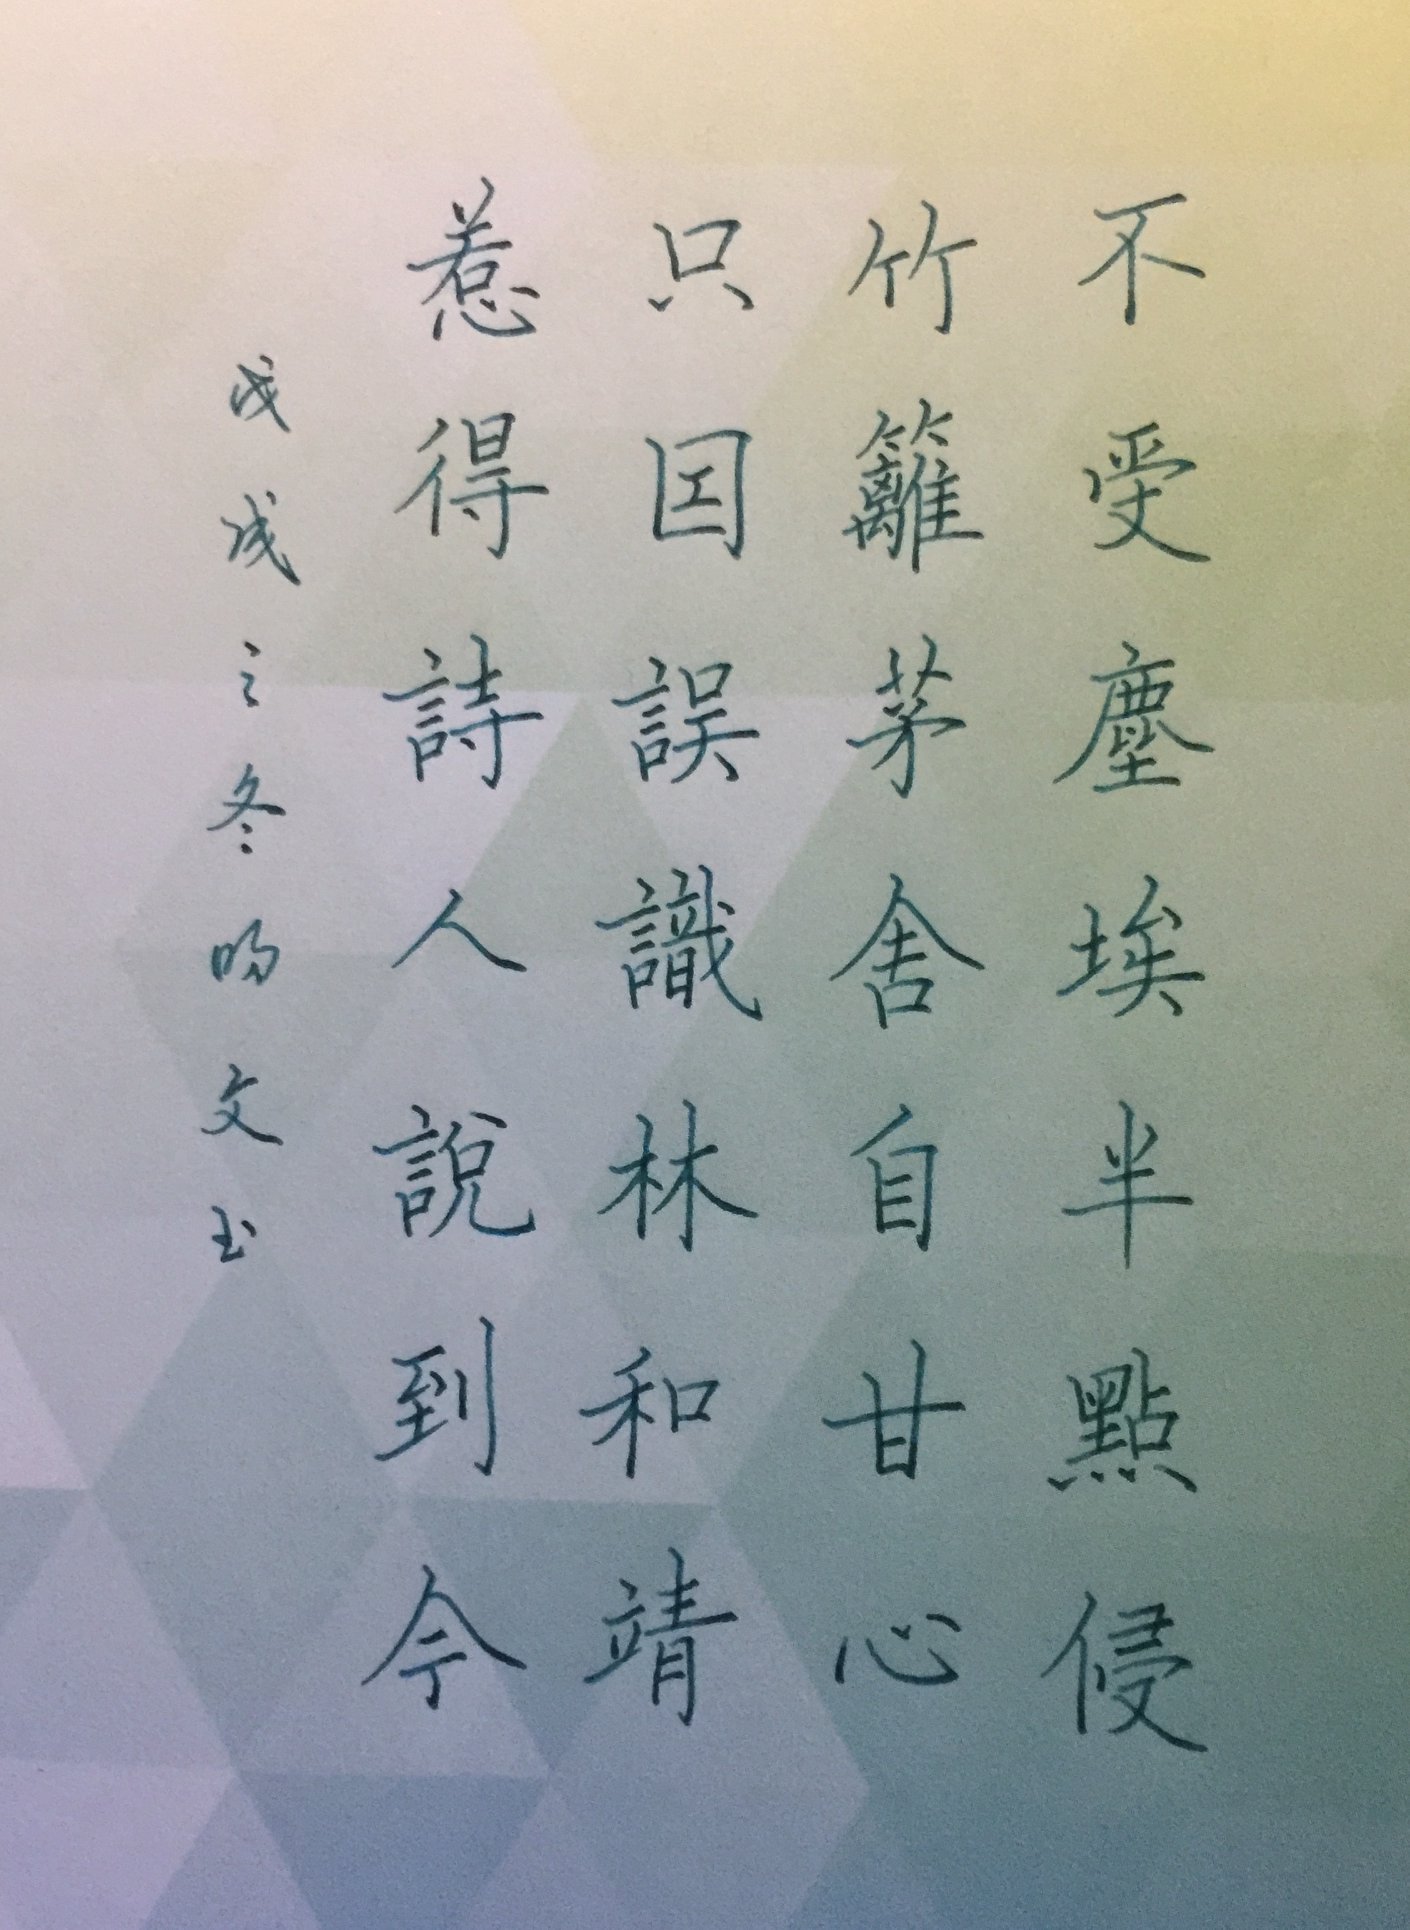 不受塵埃半點侵
竹籬茅舍自甘心
只因誤識林和靖
惹得詩人說到今
戊戌之冬 文书